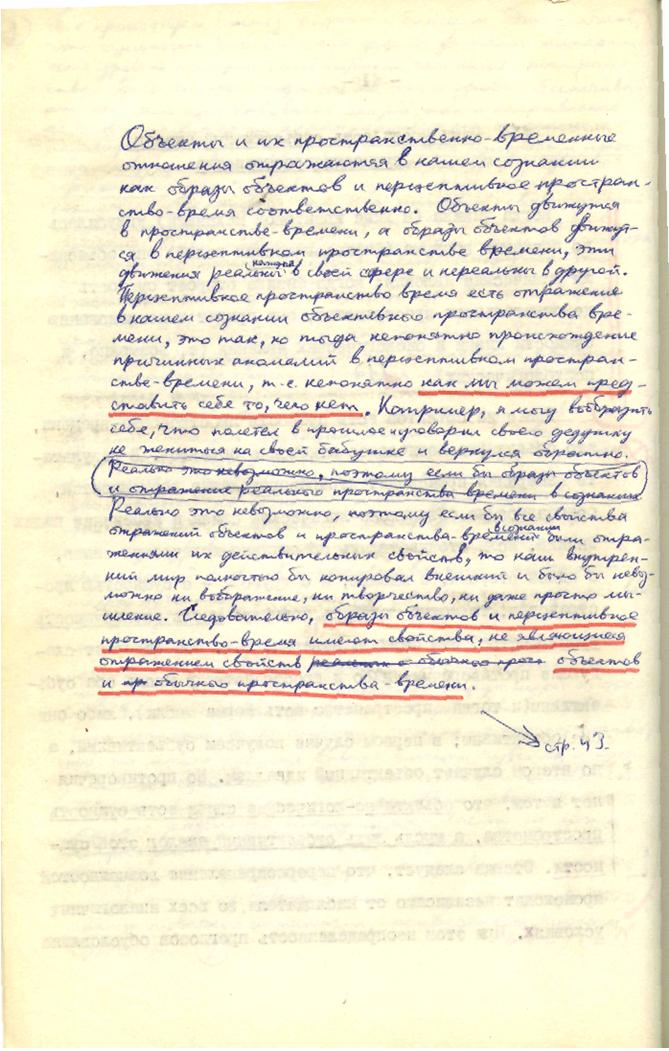 Объекты и их пространственно-временные
отношения отражаются в нашем сознании
как образы объектов и перцептивное простран-
ство-время соответственно. Объекты движутся
в пространстве-времени, а образы объектов движут-
ся в перцептивном пространстве времени, эти
движения реальны каждый в своей сфере и нереальны в другой.
Перцептивное пространство время есть отражение
в нашем сознании объективного пространства вре-
мени, это так, но тогда непонятно происхождение
причинных аномалий в перцептивном простран-
стве-времени, т-е непонятно как мы можем пред-
ставить себе то, чего нет. Например, я могу вообразить
себе, что полетел в прошлое, уговорил своего дедушку
не жениться на своей бабушке и вернулся обратно.
Реально это невозможно, поэтому если бы образы объектов
и отражение реального пространства времени в сознании
Реально это невозможно, поэтому если бы все свойства
отражений объектов и пространства-времени в сознании были отра-
жениями их действительных свойств, то наш внутрен-
ний мир полностью бы копировал внешний и было бы невоз-
можно ни воображение, ни творчество, ни даже просто мы-
шление. Следовательно, образы объектов и перцептивное
пространство-время имеют свойства, не являющиеся
отражением свойств объектов
и обычного пространства-времени.
стр. 43.